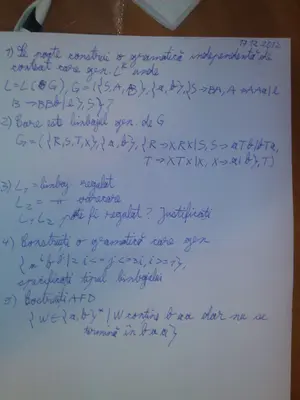 17.12.2012
1) Se poate construi o gramatică independentă de
context care gen. L^R unde
L = L(G), G = ({S, A, B}, {a, b}, {S → BA, A → AAa|λ
B → BBb|λ}, S)?
2) Care este limbajul gen. de G
G = ({R, S, T, X}, {a, b}, {R → XRX|S, S → aTb|bTa,
T → XTX|X, X → a|b}, T)
3) L₁ = limbaj regulat
L₂ = oarecare
L₁L₂ poate fi regulat? Justificați
4) Construiți o gramatică care gen
specificați tipul limbajelor
5) Construiți AFD
{W ∈ {a, b}* | W conține baa dar nu se
termină în baa}